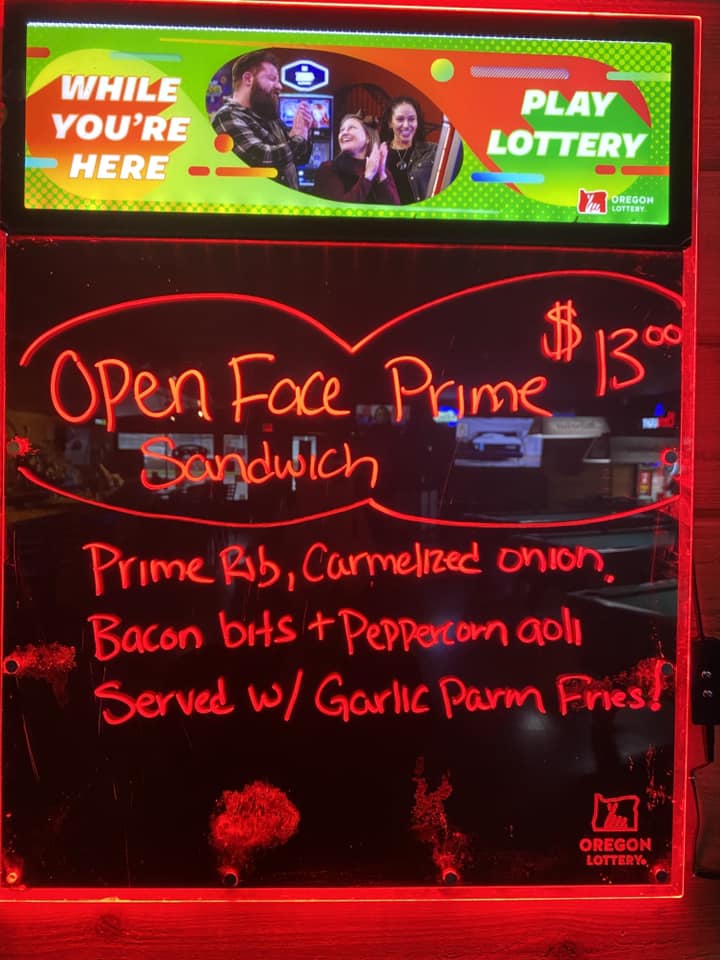 WHILE
YOU'RE
HERE
PLAY
LOTTERY
OREGON
LOTTERY.
$13.00
Open Face Prime
Sandwich
Prime Rib, Carmelized onion,
Bacon bits + Peppercorn aoli
Served w/ Garlic Parm Fries!
OREGON
LOTTERY.